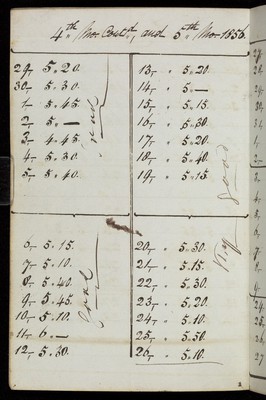 4th Mo. Cont'd, and 5th Mo 1856.
29 5.20
30 5.30
1 5.45
2 5. —
3 4.45
4 5.30
5 5.40
6 5.15.
7 5.10.
8 5.40
9 5.45.
10 5.10.
11 6. —
12 5.30.
13 " 5.20
14 " 5. —
15 " 5.15
16 " 5.30
17 " 5.20
18 " 5.40
19 " 5.15
20 " 5.30.
21 " 5.15.
22 " 5.30
23 " 5.20.
24 " 5.10
25 " 5.50
26 " 5.10.